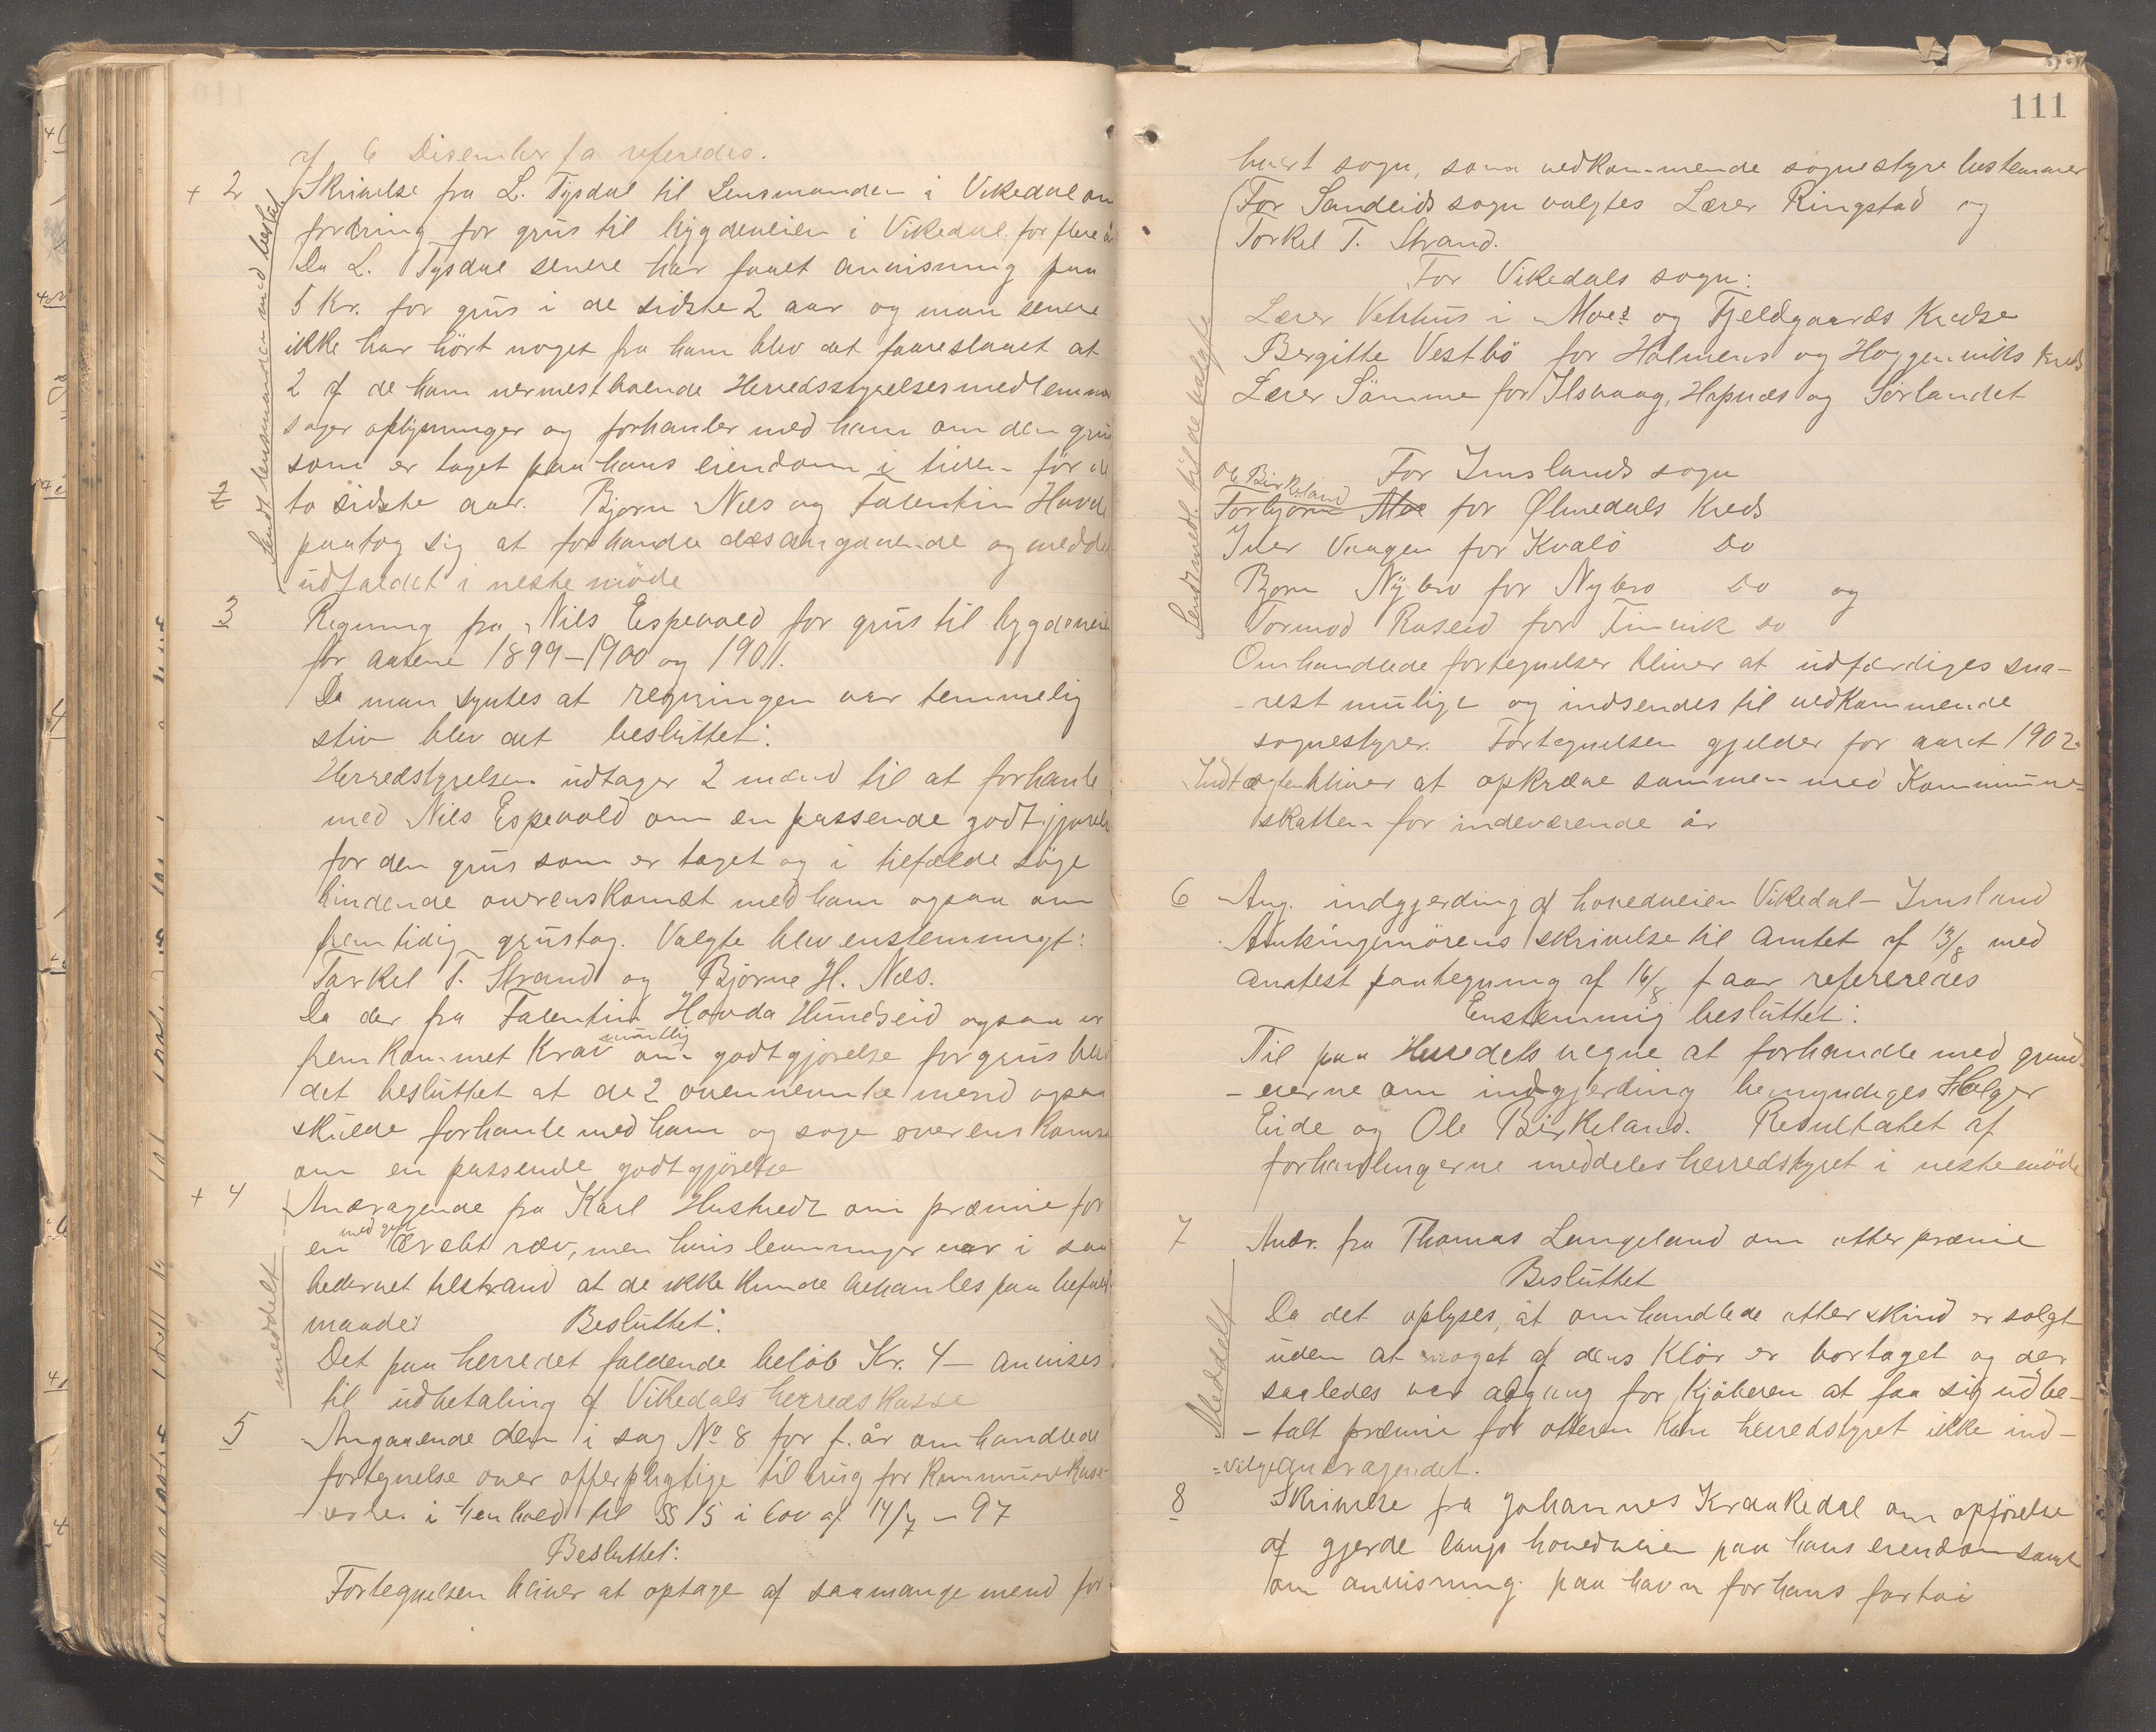 af 6 Disember f a referedes.
+ 2 Skrivelse fra L. Tysdal til Lensmanden i Vikedal om
fordring for grus til bygdeveien i Vikedal for flere år
Da L. Tysdal senere har faaet anvisning paa
5 Kr. for grus i de sidste 2 aar og man senere
ikke har hört noget fra ham blev det faareslaaet at
2 af de ham nermestboende Herredsstyrelsesmedlemmer
söger oplysninger og forhanler med ham om den grus
som er taget paa hans eiendom i tiden för de
2 to sidste aar. Bjorn Næs og Falentin Hovda
paatog sig at forhandle desangaaende og meddele
udfaldet i neste möde
Sendt lensmanden med besked.
3 Regning fra Nils Espevold for grus til bygdeveien
for aarene 1899-1900 og 1901.
Da man syntes at regningen var temmelig
stiv blev det besluttet:
Herredstyrelsen udtager 2 mænd til at forhanle
med Nils Espevold om en passende godtgjorelse
for den grus som er taget og i tilfælde söge
bindende overenskomst med ham ogsaa om
fremtidig grustag. Valgte blev enstemmigt:
Tarkel T. Strand og Bjorne H. Næs.
Da der fra Falentin Hovda Hundseid ogsaa er
fremkommet Krav mundtlig om godtgjorelse for grus blev
det besluttet at de 2 ovennevnte mend ogsaa
skulde forhanle med ham og soge overenskomst
om en passende godtgjörelse
+ 4 Andragende fra Karl Hustvedt om præmie for
en med gift dræbt ræv, men hvis levninger var i saa
bedervet tilstand at de ikke kunde behanles paa befalet
maade: Besluttet:
Det paa herredet faldende belöb Kr. 4 - anvises
til udbetaling af Vikedals herredskasse
meddelt
5 Angaaende den i sag No 8 for f. år omhandlede
fortegnelse over offerpligtige til brug for Kommunekass-
-erer i henhold til §§ 15 i lov af 14/7 - 97
Besluttet:
Fortegnelsen bliver at optage af saamange mend for
111
hvert sogn, som vedkommende sognestyre bestemmer
For Sandeids sogn valgtes Lærer Ringstad og
Torkel T. Strand.
For Vikedals sogn:
Lærer Vethus i Moes og Fjeldgaards Kredse
Bergitte Vestbö for Holmens og Hoggenviks Kreds
Lærer Sömme for Ilsvaag, Hapnæs og Sörlandet
For Imslands sogn
Ole Birkeland
Torbjörn Moe for Ølmedals Kreds
Iver Vaagen for Kvalö Do
Bjorn Nybro for Nybro Do og
Tormod Raseid for Finvik do
Omhandlede fortegnelser bliver at udfærdiges sna-
-rest mulige og indsendes til vedkommende
sognestyrer. Fortegnelsen gjelder for aaret 1902.
Indtægten bliver at opkræve sammen med Kommune-
skatten for indeværende år
Sendt meddt. til de valgte
6 Ang. indgjerding af hovedveien Vikedal - Imsland
Amtsingeniörens skrivelse til Amtet af 13/8 med
amtest paategning af 16/8 f aar refereredes
Enstemmig besluttet:
Til paa Herredets vegne at forhandle med grund-
-eierne om indgjerding bemyndiges Holger
Eide og Ole Birkeland. Resultatet af
forhandlingerne meddeles herredstyret i neste möde
7 Andr. fra Thomas Langeland om otter præmie
Besluttet
Da det oplyses, at omhandlede otter skind er solgt
uden at noget af dens Klör er bortaget og der
saaledes var adgang for Kjöberen at faa sig udbe-
-talt præmie for otteren Kan herredstyret ikke ind-
=vilge andragendet.
Meddelt
8 Skrivelse fra Johannes Kraakedal om opförelse
af gjerde langs hovedveien paa hans eiendom samt
om anvisning paa havn for hans fartöi